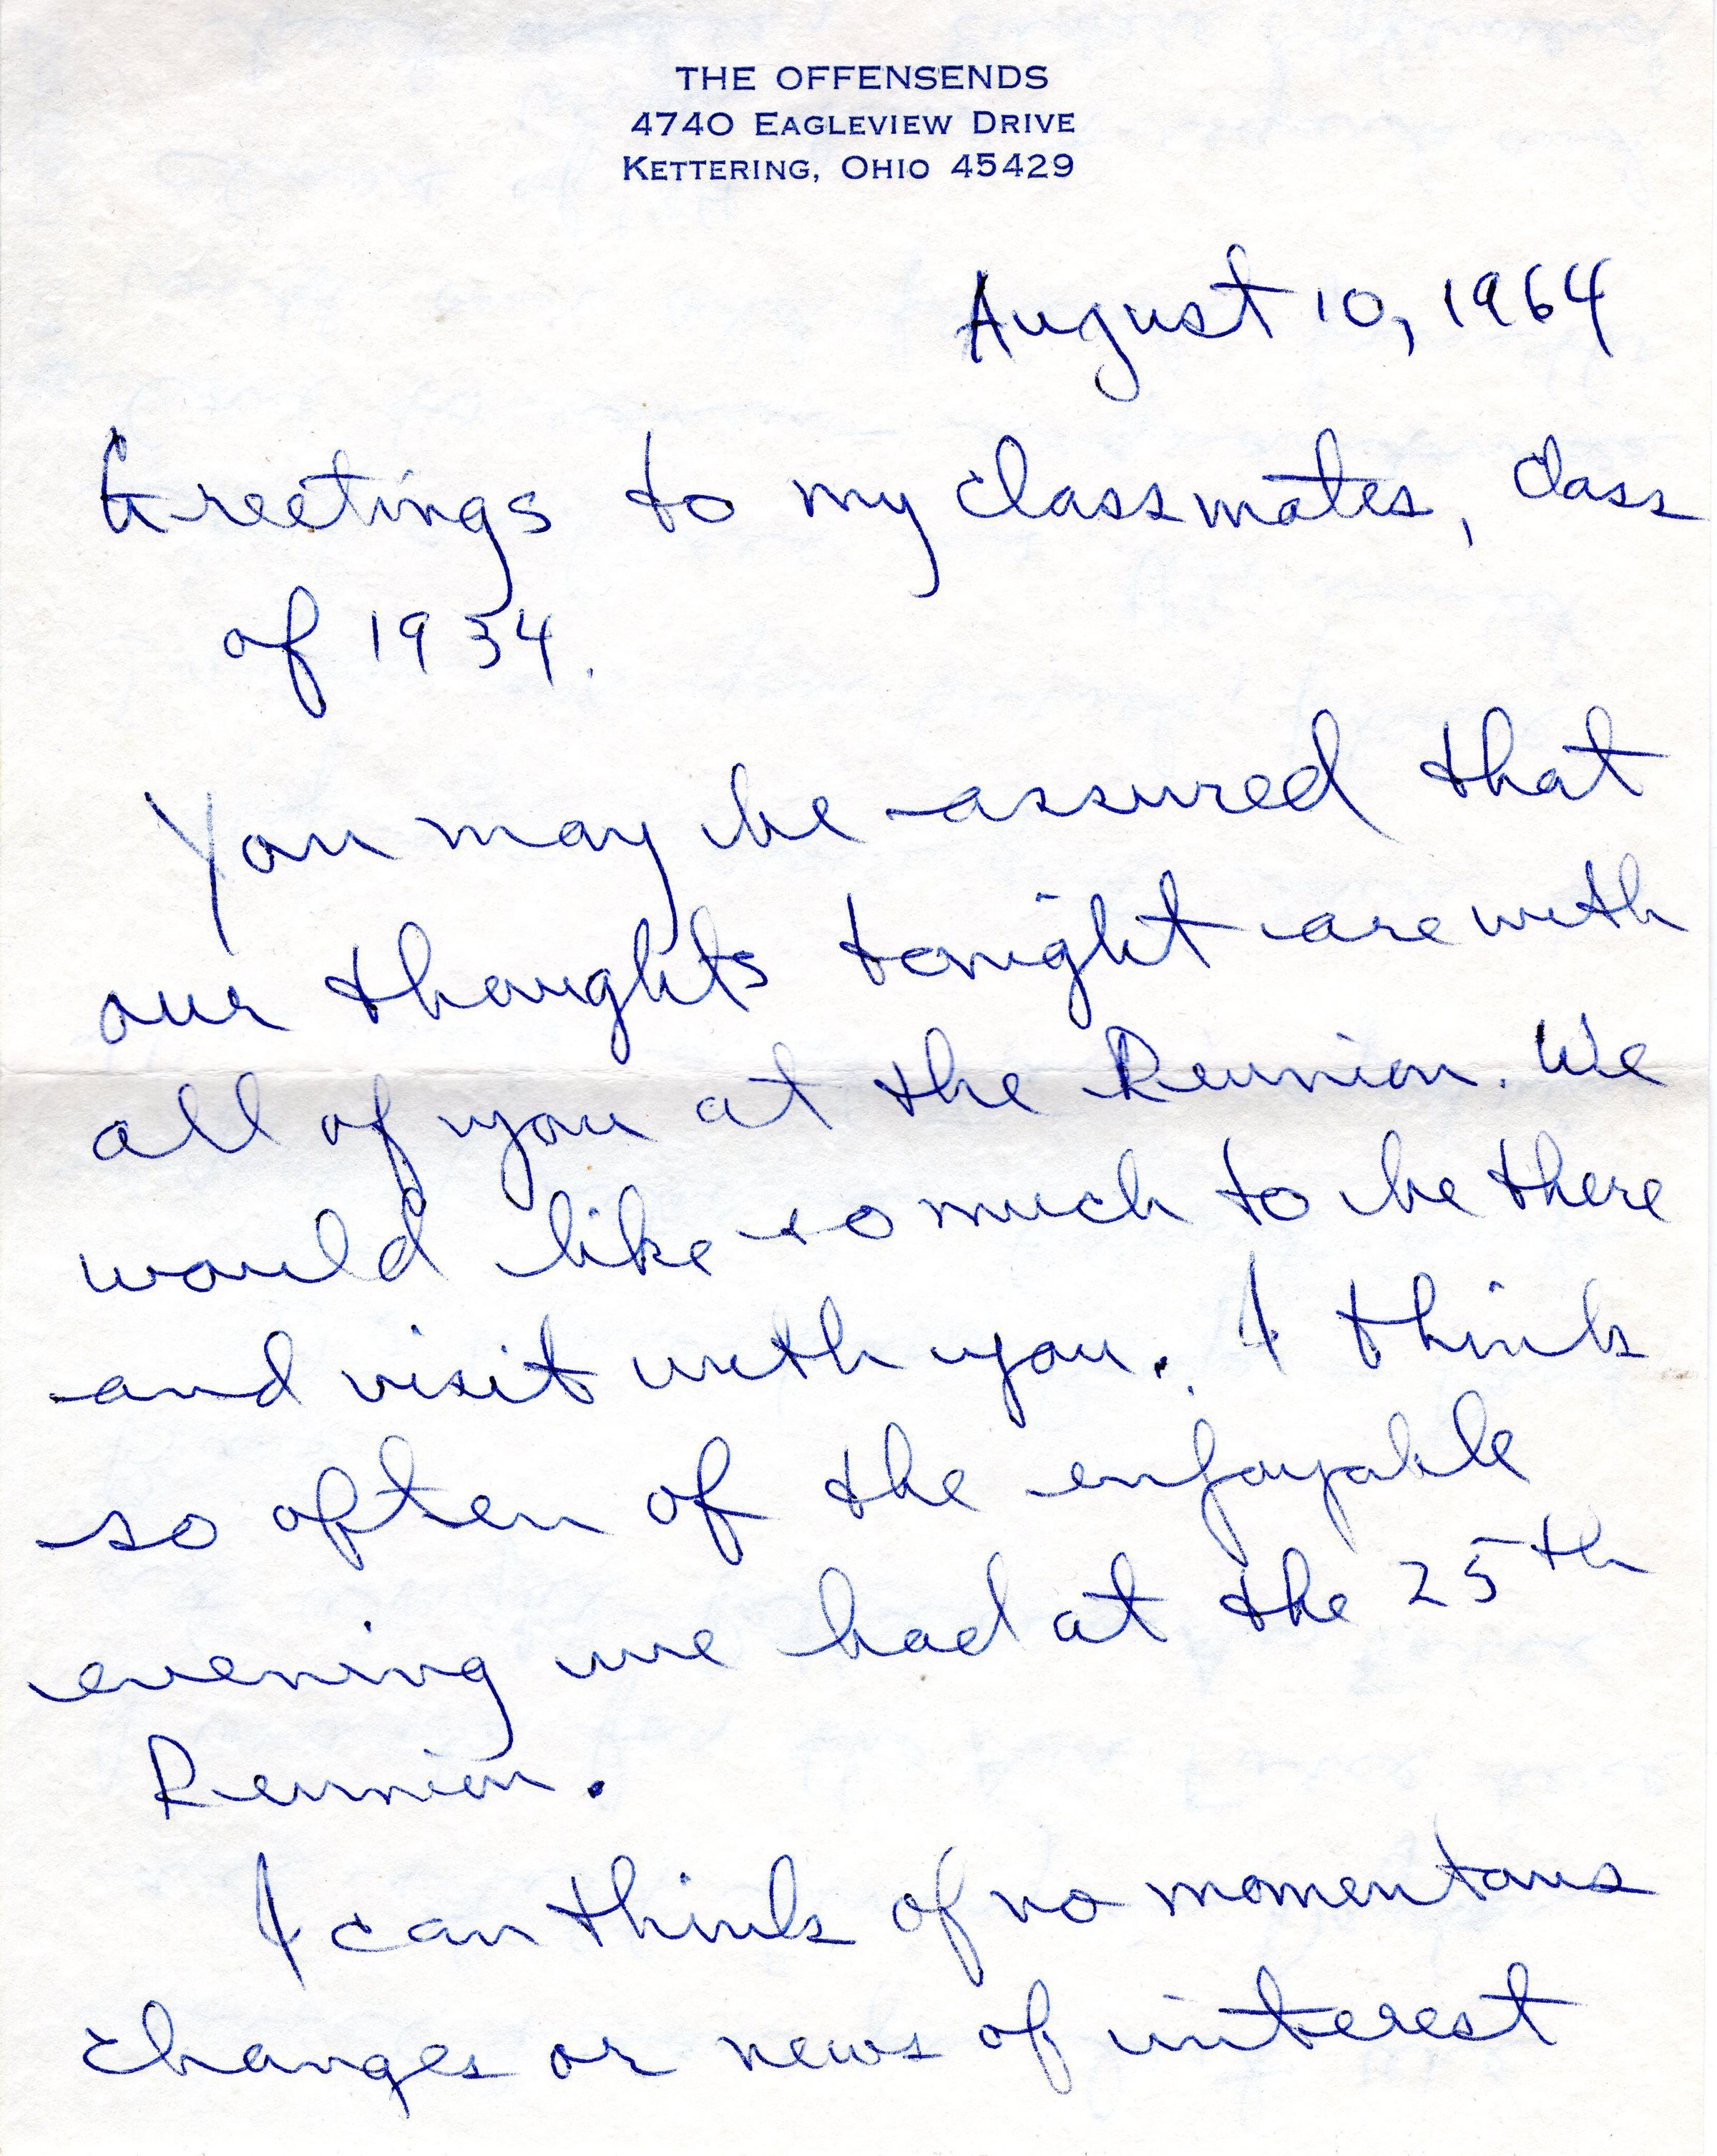 THE OFFENSENDS
4740 EAGLEVIEW DRIVE
KETTERING, OHIO 45429
August 10, 1964
Greetings to my classmates, class
of 1934.
You may be assured that
our thoughts tonight are with
all of you at the Reunion. We
would like so much to be there
and visit with you. I think
so often of the enjoyable
evening we had at the 25th
Reunion.
I can think of no momentous
changes or news of interest